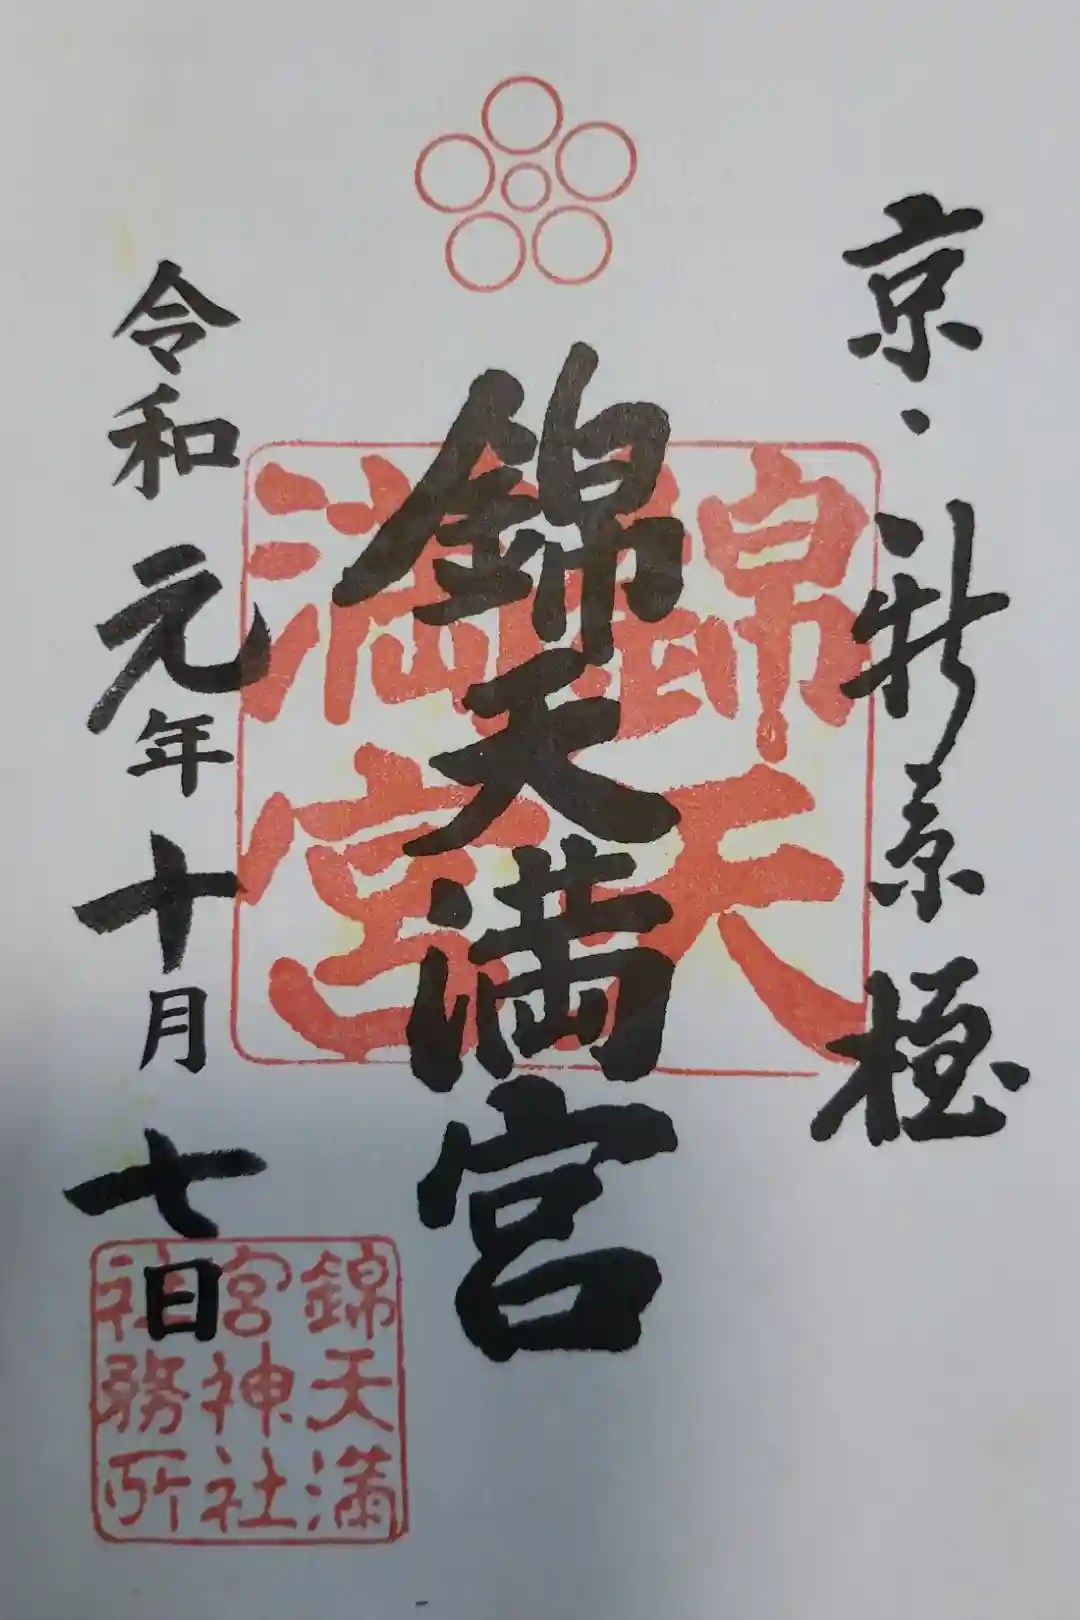 京・新京極
錦天満宮
令和元年十月七日
錦天
満宮
錦天満
宮神社
社務所